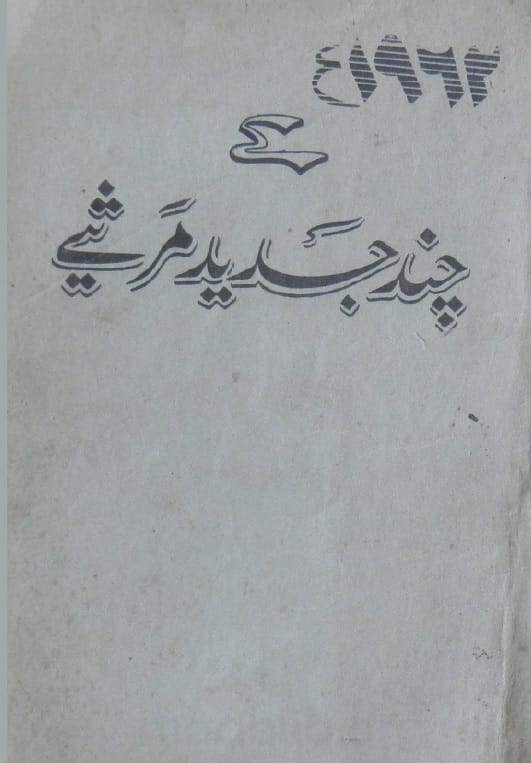 ۱۹۶۲ء
کے
چند جَدید مَرثیے